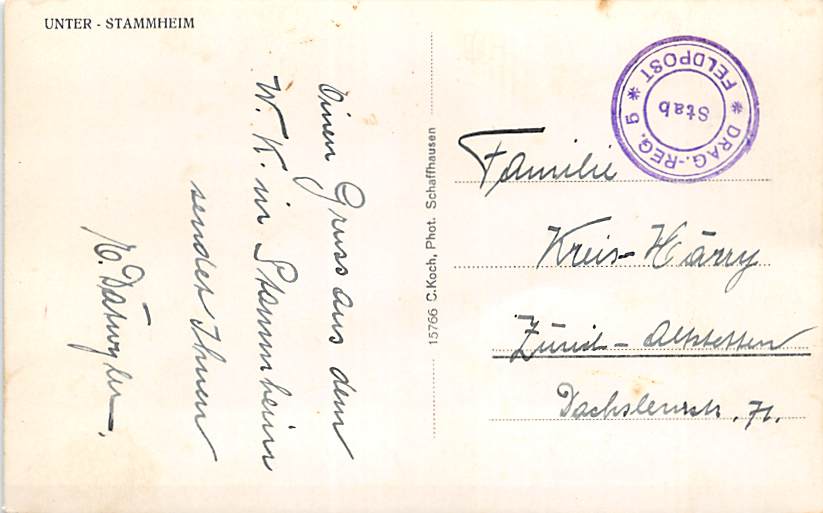 UNTER - STAMMHEIM
Einen Gruss aus dem
W. K. in Stammheim
sendet Ihnen
15766 C. Koch, Phot. Schaffhausen
* DRAG.-REG. 5 * FELDPOST
Stab
Familie
Kreis-Härry
Zürich - Altstetten
Dachslernstr. 71.